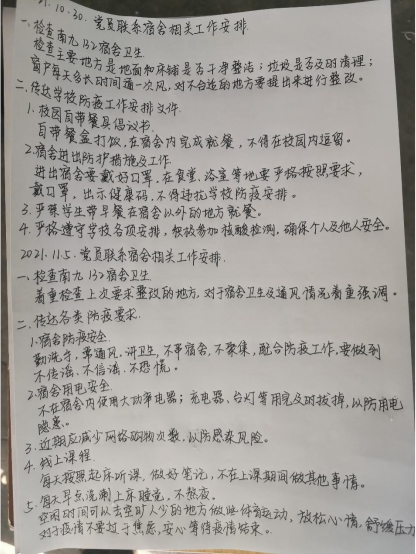 21.10.30. 党员联系宿舍相关工作安排
一、检查南九132宿舍卫生
检查主要地方是地面和床铺是否干净整洁；垃圾是否及时清理；
窗户每天多长时间通一次风，对不合适的地方要提出来进行整改。
二、传达学校防疫工作安排文件
1.校园自带餐具倡议书
自带餐盒打饭，在宿舍内完成就餐，不得在校园内逗留。
2.宿舍进出防护措施及工作
进出宿舍要戴好口罩，在食堂、浴室等地要严格按照要求，
戴口罩，出示健康码，不得违抗学校防疫安排。
3.严禁学生带早餐在宿舍以外的地方就餐。
4.严格遵守学校各项安排，积极参加核酸检测，确保个人及他人安全。
2021.11.5. 党员联系宿舍相关工作安排.
一、检查南九132宿舍卫生
着重检查上次要求整改的地方，对于宿舍卫生及通风情况着重强调。
二、传达各类防疫要求.
1.宿舍防疫安全
勤洗手，常通风，讲卫生，不串宿舍，不聚集，配合防疫工作，要做到
不传谣、不信谣、不恐慌。
2.宿舍用电安全
不在宿舍内使用大功率电器；充电器、台灯等用完及时拔掉，以防用电
隐患。
3.近期应减少网络购物次数，以防感染风险。
4.线上课程
每天按照起床听课，做好笔记，不在上课期间做其他事情。
5.每天早点洗漱上床睡觉，不熬夜。
空闲时间可以去空旷人少的地方做些体育运动，放松心情，舒缓压力
对于疫情不要过于焦虑，安心等待疫情结束。